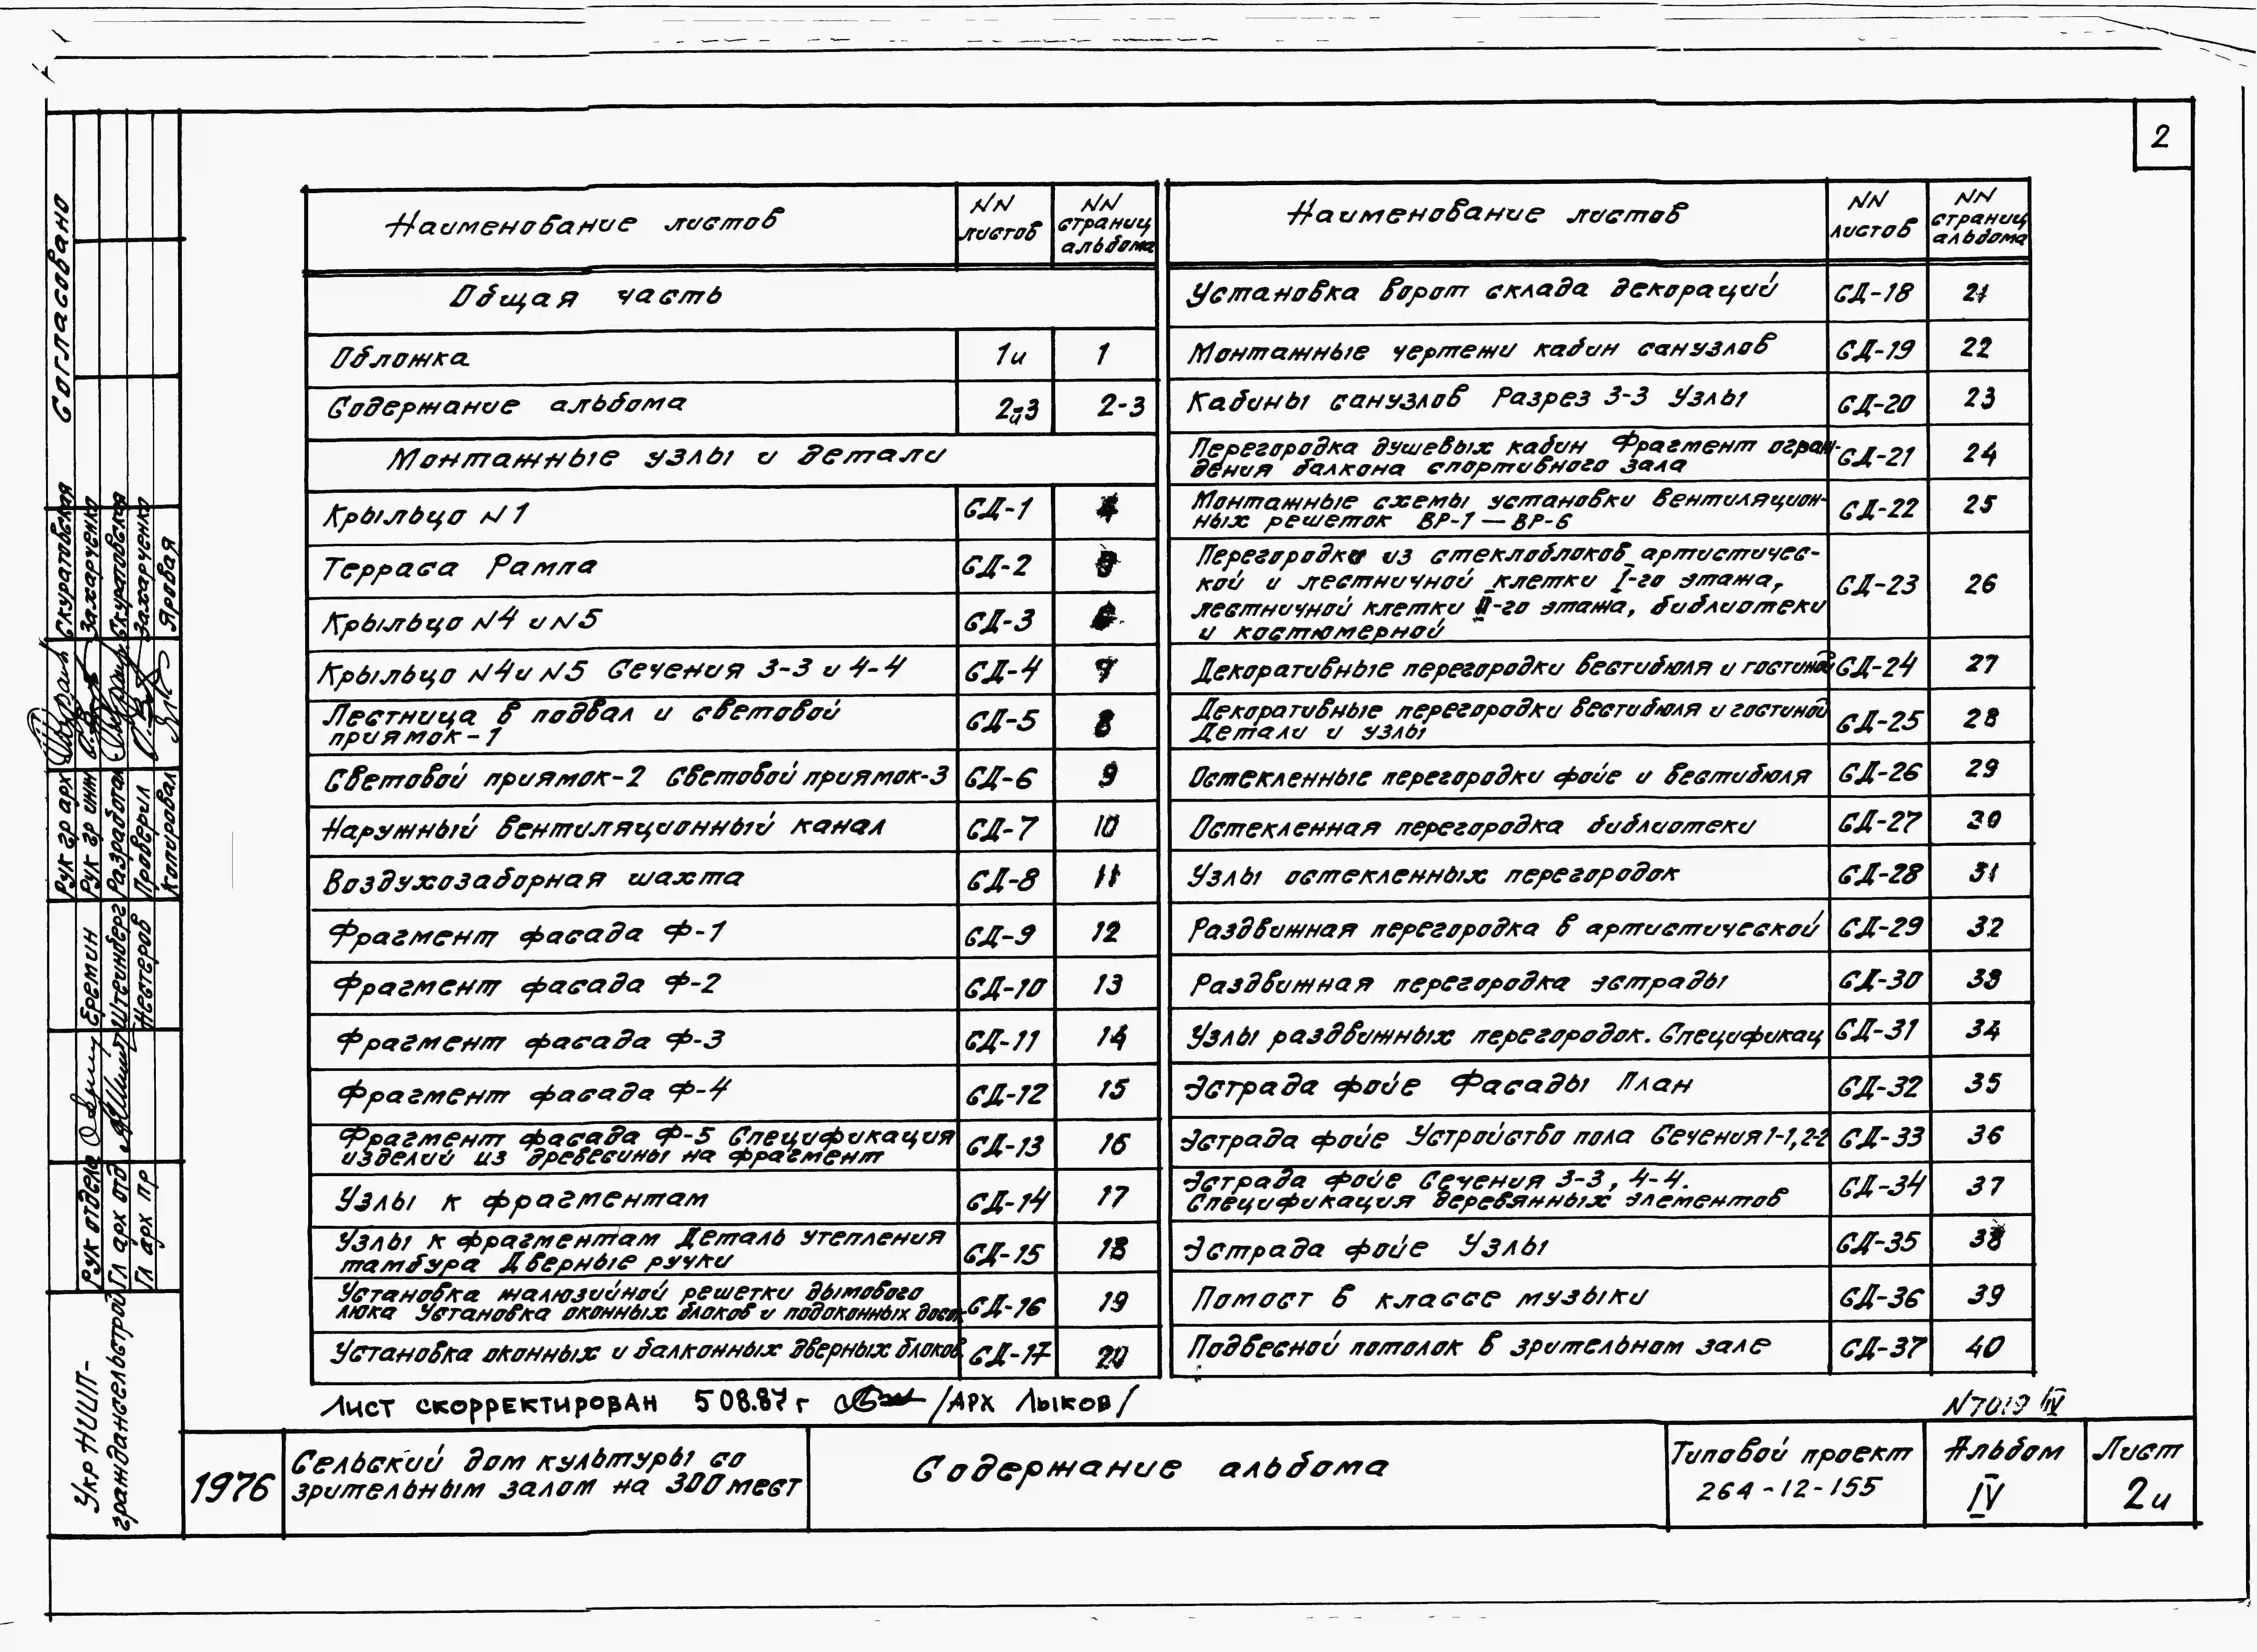 2
Наименование листов | NN листов | NN страниц альбома
Общая часть
Обложка | 1и | 1
Содержание альбома | 2и3 | 2-3
Монтажные узлы и детали
Крыльцо N1 | СД-1 | 4
Терраса Рампа | СД-2 | 5
Крыльцо N4 и N5 | СД-3 | 6
Крыльцо N4 и N5 Сечения 3-3 и 4-4 | СД-4 | 7
Лестница в подвал и световой
приямок-1 | СД-5 | 8
Световой приямок-2 Световой приямок-3 | СД-6 | 9
Наружный вентиляционный канал | СД-7 | 10
Воздухозаборная шахта | СД-8 | 11
Фрагмент фасада Ф-1 | СД-9 | 12
Фрагмент фасада Ф-2 | СД-10 | 13
Фрагмент фасада Ф-3 | СД-11 | 14
Фрагмент фасада Ф-4 | СД-12 | 15
Фрагмент фасада Ф-5 Спецификация
изделий из древесины на фрагмент | СД-13 | 16
Узлы к фрагментам | СД-14 | 17
Узлы к фрагментам Деталь утепления
тамбура Дверные ручки | СД-15 | 18
Установка жалюзийной решетки дымового
люка Установка оконных блоков и подоконных досок | СД-16 | 19
Установка оконных и балконных дверных блоков | СД-17 | 20
Наименование листов | NN листов | NN страниц альбома
Установка ворот склада декораций | СД-18 | 21
Монтажные чертежи кабин санузлов | СД-19 | 22
Кабины санузлов Разрез 3-3 Узлы | СД-20 | 23
Перегородка душевых кабин Фрагмент ограж-
дения балкона спортивного зала | СД-21 | 24
Монтажные схемы установки вентиляцион-
ных решеток ВР-1 — ВР-6 | СД-22 | 25
Перегородки из стеклоблоков артистичес-
кой и лестничной клетки I-го этажа,
лестничной клетки II-го этажа, библиотеки
и костюмерной | СД-23 | 26
Декоративные перегородки вестибюля и гостиной | СД-24 | 27
Декоративные перегородки вестибюля и гостиной
Детали и узлы | СД-25 | 28
Остекленные перегородки фойе и вестибюля | СД-26 | 29
Остекленная перегородка библиотеки | СД-27 | 30
Узлы остекленных перегородок | СД-28 | 31
Раздвижная перегородка в артистической | СД-29 | 32
Раздвижная перегородка эстрады | СД-30 | 33
Узлы раздвижных перегородок. Спецификац | СД-31 | 34
Эстрада фойе Фасады План | СД-32 | 35
Эстрада фойе Устройство пола Сечения 1-1, 2-2 | СД-33 | 36
Эстрада фойе Сечения 3-3, 4-4.
Спецификация деревянных элементов | СД-34 | 37
Эстрада фойе Узлы | СД-35 | 38
Помост в классе музыки | СД-36 | 39
Подвесной потолок в зрительном зале | СД-37 | 40
Лист скорректирован 5 08.87 г /Арх Лыков/
N7019 IV
1976
Сельский дом культуры со
зрительным залом на 300 мест
Содержание альбома
Типовой проект
264-12-155
Альбом
IV
Лист
2и
Согласовано
Рук гр арх Скуратовская
Рук гр инж Захарченко
Разработал Скуратовская
Проверил Захарченко
Копировал Яровая
Рук отдела Еремин
Гл арх отд Штейнберг
Гл арх пр Нестеров
Укр НИИП-
граждансельстрой